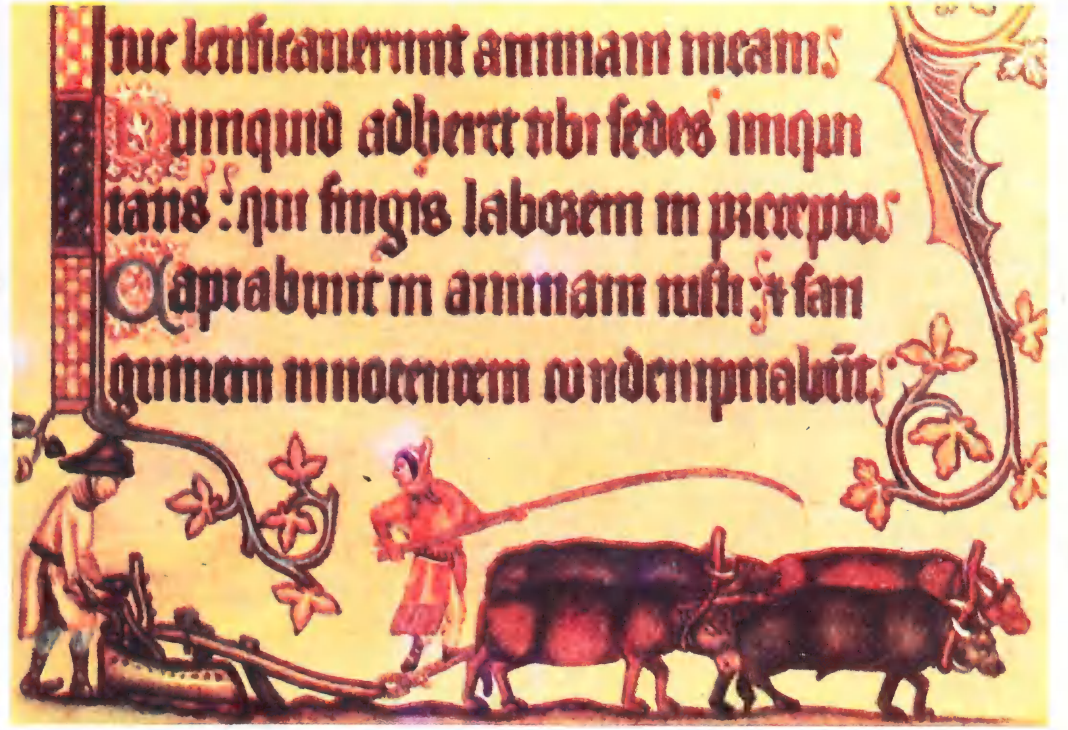 tue letificauerunt animam meam
Numquid adheret tibi sedes iniqui
tatis : qui fingis laborem in precepto
Captabunt in animam iusti : ⁊ san
guinem innocentem condempnabūt